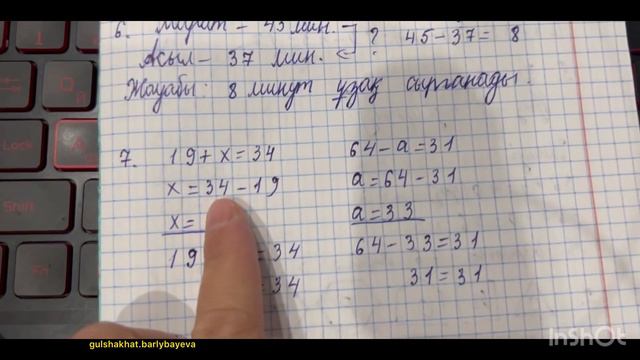 6. Марат - 45 мин. ? 45-37= 8
Асыл - 37 мин.
Жауабы: 8 минут ұзақ сырғанады.
7. 19+x=34
x=34-19
x=
19 =34
=34
64-a=31
a=64-31
a=33
64-33=31
31=31
Shift
gulshakhat.barlybayeva
InShOt